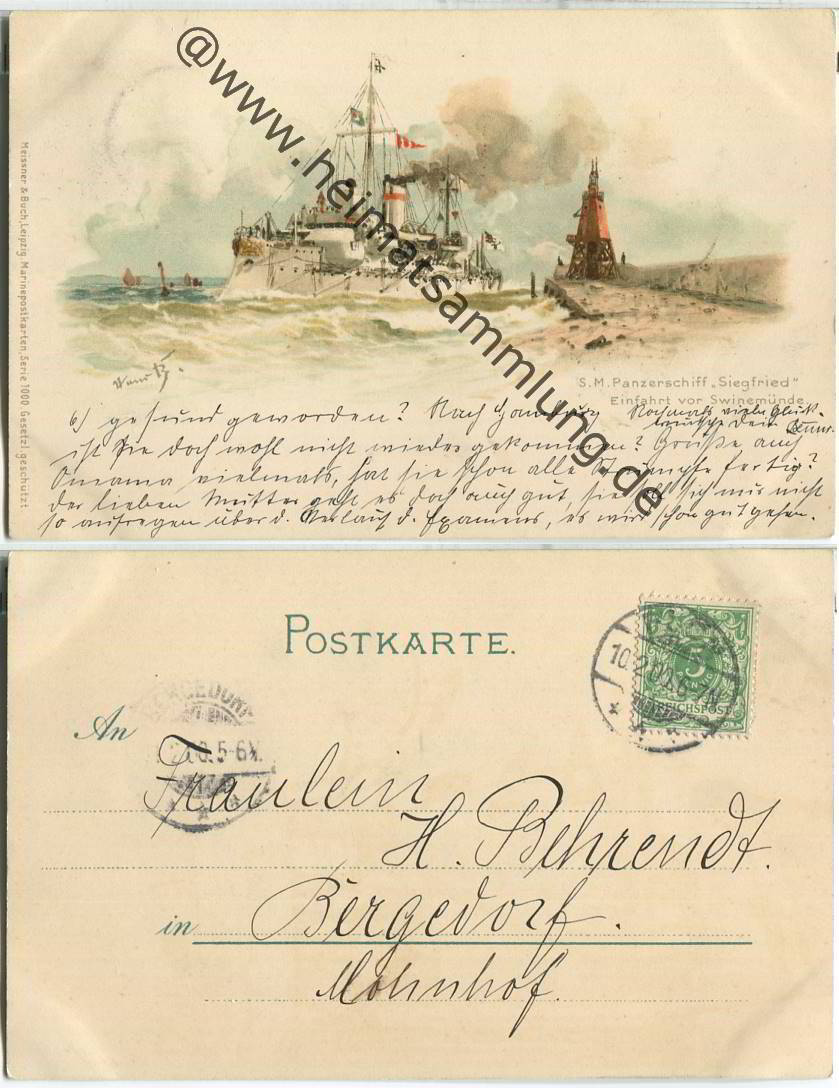 @www.heimatsammlung.de
Meissner & Buch, Leipzig. Marinepostkarten, Serie 1000 Gesetzl. geschützt
S.M. Panzerschiff „Siegfried"
Einfahrt vor Swinemünde.
6) gesund geworden? Nach Hamburg
Nochmals viele Glück-
wünsche Dein
ist Sie doch wohl nicht wieder gekommen? Grüße auch
Omama vielmals, hat sie schon alle Strümpfe fertig?
der lieben Mutter geht es doch auch gut, sie soll sich nur nicht
so aufregen über d. Verlauf d. Examens, es wird schon gut gehen.
POSTKARTE.
5
REICHSPOST
BERGEDORF
5-6N.
An
Fräulein
H. Behrendt.
in Bergedorf.
Mohnhof.